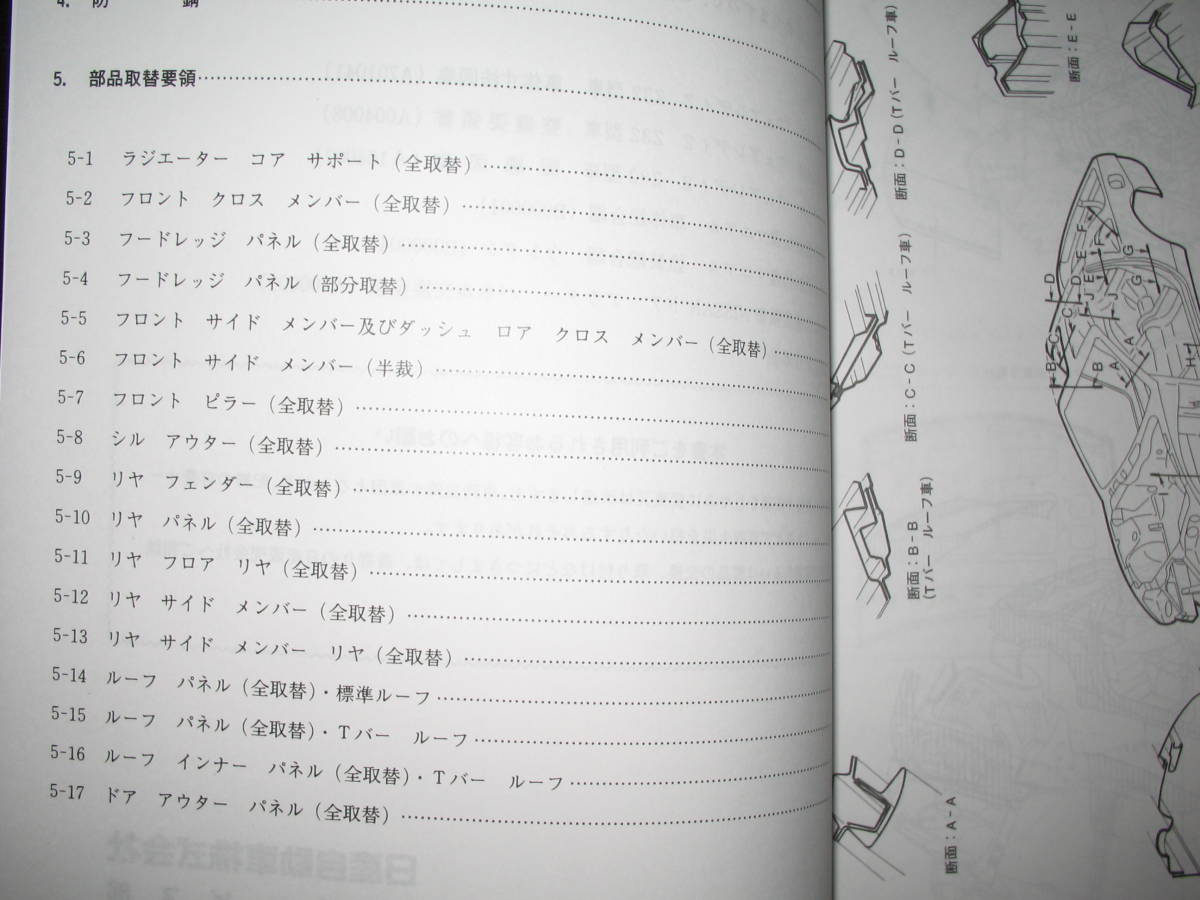 4. 防 錆
5. 部品取替要領
5-1 ラジエーター コア サポート(全取替)
5-2 フロント クロス メンバー(全取替)
5-3 フードレッジ パネル(全取替)
5-4 フードレッジ パネル(部分取替)
5-5 フロント サイド メンバー及びダッシュ ロア クロス メンバー(全取替)
5-6 フロント サイド メンバー(半裁)
5-7 フロント ピラー(全取替)
5-8 シル アウター(全取替)
5-9 リヤ フェンダー(全取替)
5-10 リヤ パネル(全取替)
5-11 リヤ フロア リヤ(全取替)
5-12 リヤ サイド メンバー(全取替)
5-13 リヤ サイド メンバー リヤ(全取替)
5-14 ルーフ パネル(全取替)・標準ルーフ
5-15 ルーフ パネル(全取替)・Tバー ルーフ
5-16 ルーフ インナー パネル(全取替)・Tバー ルーフ
5-17 ドア アウター パネル(全取替)
断面:E-E
断面:D-D(Tバー ルーフ車)
断面:C-C(Tバー ルーフ車)
断面:B-B
(Tバー ルーフ車)
断面:A-A
D
D
C
C
B
B
A
A
E
E
F
F
G
G
J
J
H
I
日産自動車株式会社